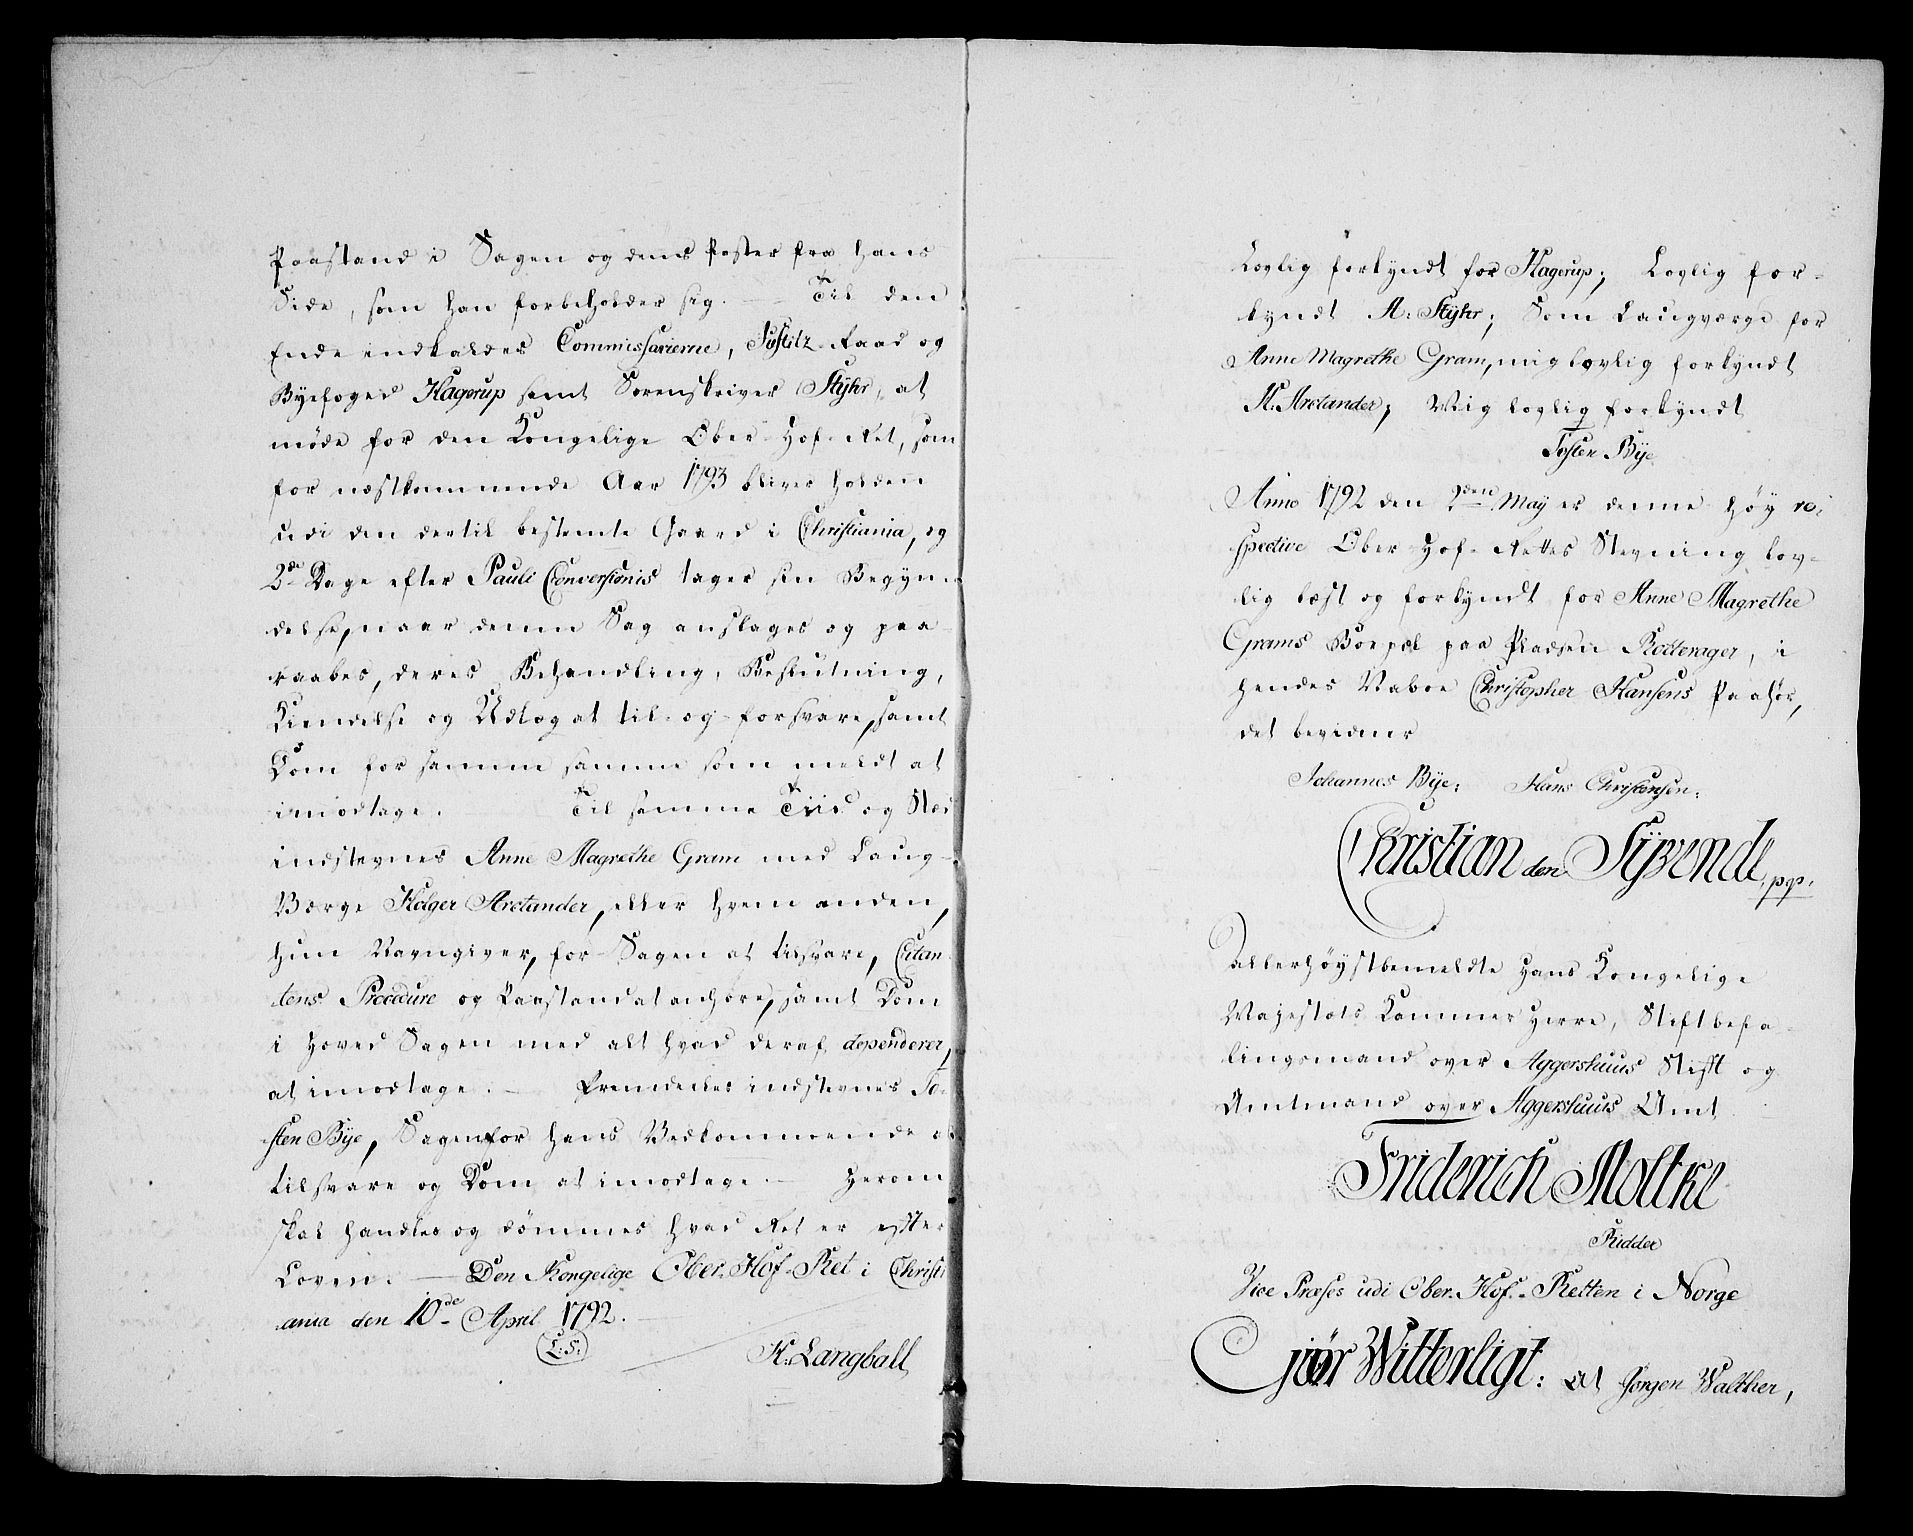 Paastand i Sagen og dens Poster fra hans
Side, som han forbeholder sig. — Til den
Ende indkaldes Commissarierne, Justitz-Raad og
Byefoged Hagerup samt Sorenskriver Stÿhr, at
møde for den Kongelige Ober-Hof-Ret, som
for næstkommende Aar 1793 bliver holden
udi den dertil bestemte Gaard i Christiania, og
2de Dage efter Pauli Conversionis tager sin Begyn-
delse, naar denne Sag anslages og paa-
raabes, deres Behandling, Beslutning,
Kiendelse og Udlæg at til- og forsvare, samt
Dom for samme samme som meldt at
imodtage. — Til samme Tiid og Stæd
indstevnes Anne Magrethe Gram med Laug-
Værge Holger Arctander, eller hvem anden,
hun Navngiver, for Sagen at tilsvare, Citan-
tens Procedure og Paastand at anhøre, samt Dom
i Hoved Sagen med alt hvad deraf dependerer,
at imodtage. — Fremdeeles indstevnes To-
sten Bÿe, Sagen for hans Vedkommende at
tilsvare og Dom at imodtage. — Herom
skal handles og dømmes hvad Ret er efter
Loven. — Den Kongelige Ober-Hof-Ret i Christi-
ania den 10de April 1792.
(L:S:)
H. Langball
Lovlig forkyndt for Hagerup; Lovlig for-
kyndt A: Stÿhr; Som Laugværge for
Anne Magrethe Gram, mig lovlig forkyndt
H. Arctander; Mig lovlig forkyndt
Tosten Bÿe
Anno 1792 den 2den Maÿ er denne høy re-
spective Ober-Hof-Rettes Stevning lov-
lig læst og forkyndt for Anne Magrethe
Grams Boepæl paa Pladsen Rotterager, i
hendes Naboe Christopher Hansens Paahør,
det bevidner
Johannes Bÿe: Hans Christensen:
Christian den Sÿvende, pp.
Allerhøystbemeldte Hans Kongelige
Majestæts Kammer Herre, Stiftbefa-
lingsmand over Aggershuus Stift og
Amtmand over Aggershuus Amt
Friderich Moltke
Ridder
Vice Præses udi Ober-Hof-Retten i Norge
Gjør Witterligt: At Jørgen Walther,